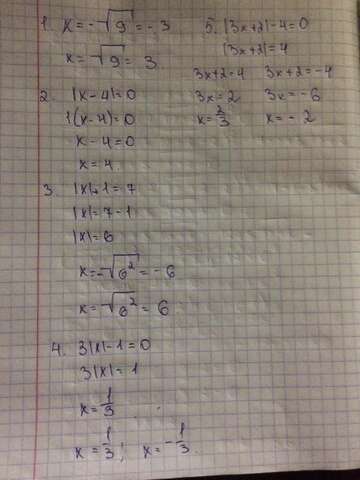 1. x = -√9 = -3
x = √9 = 3
2. |x-4|=0
1(x-4)=0
x-4=0
x=4
3. |x|+1=7
|x|=7-1
|x|=6
x=-√6² = -6
x=√6² = 6
4. 3|x|-1=0
3|x|=1
x=1/3
x=1/3; x=-1/3.
5. |3x+2|-4=0
|3x+2|=4
3x+2=4 3x+2=-4
3x=2 3x=-6
x=2/3 x=-2